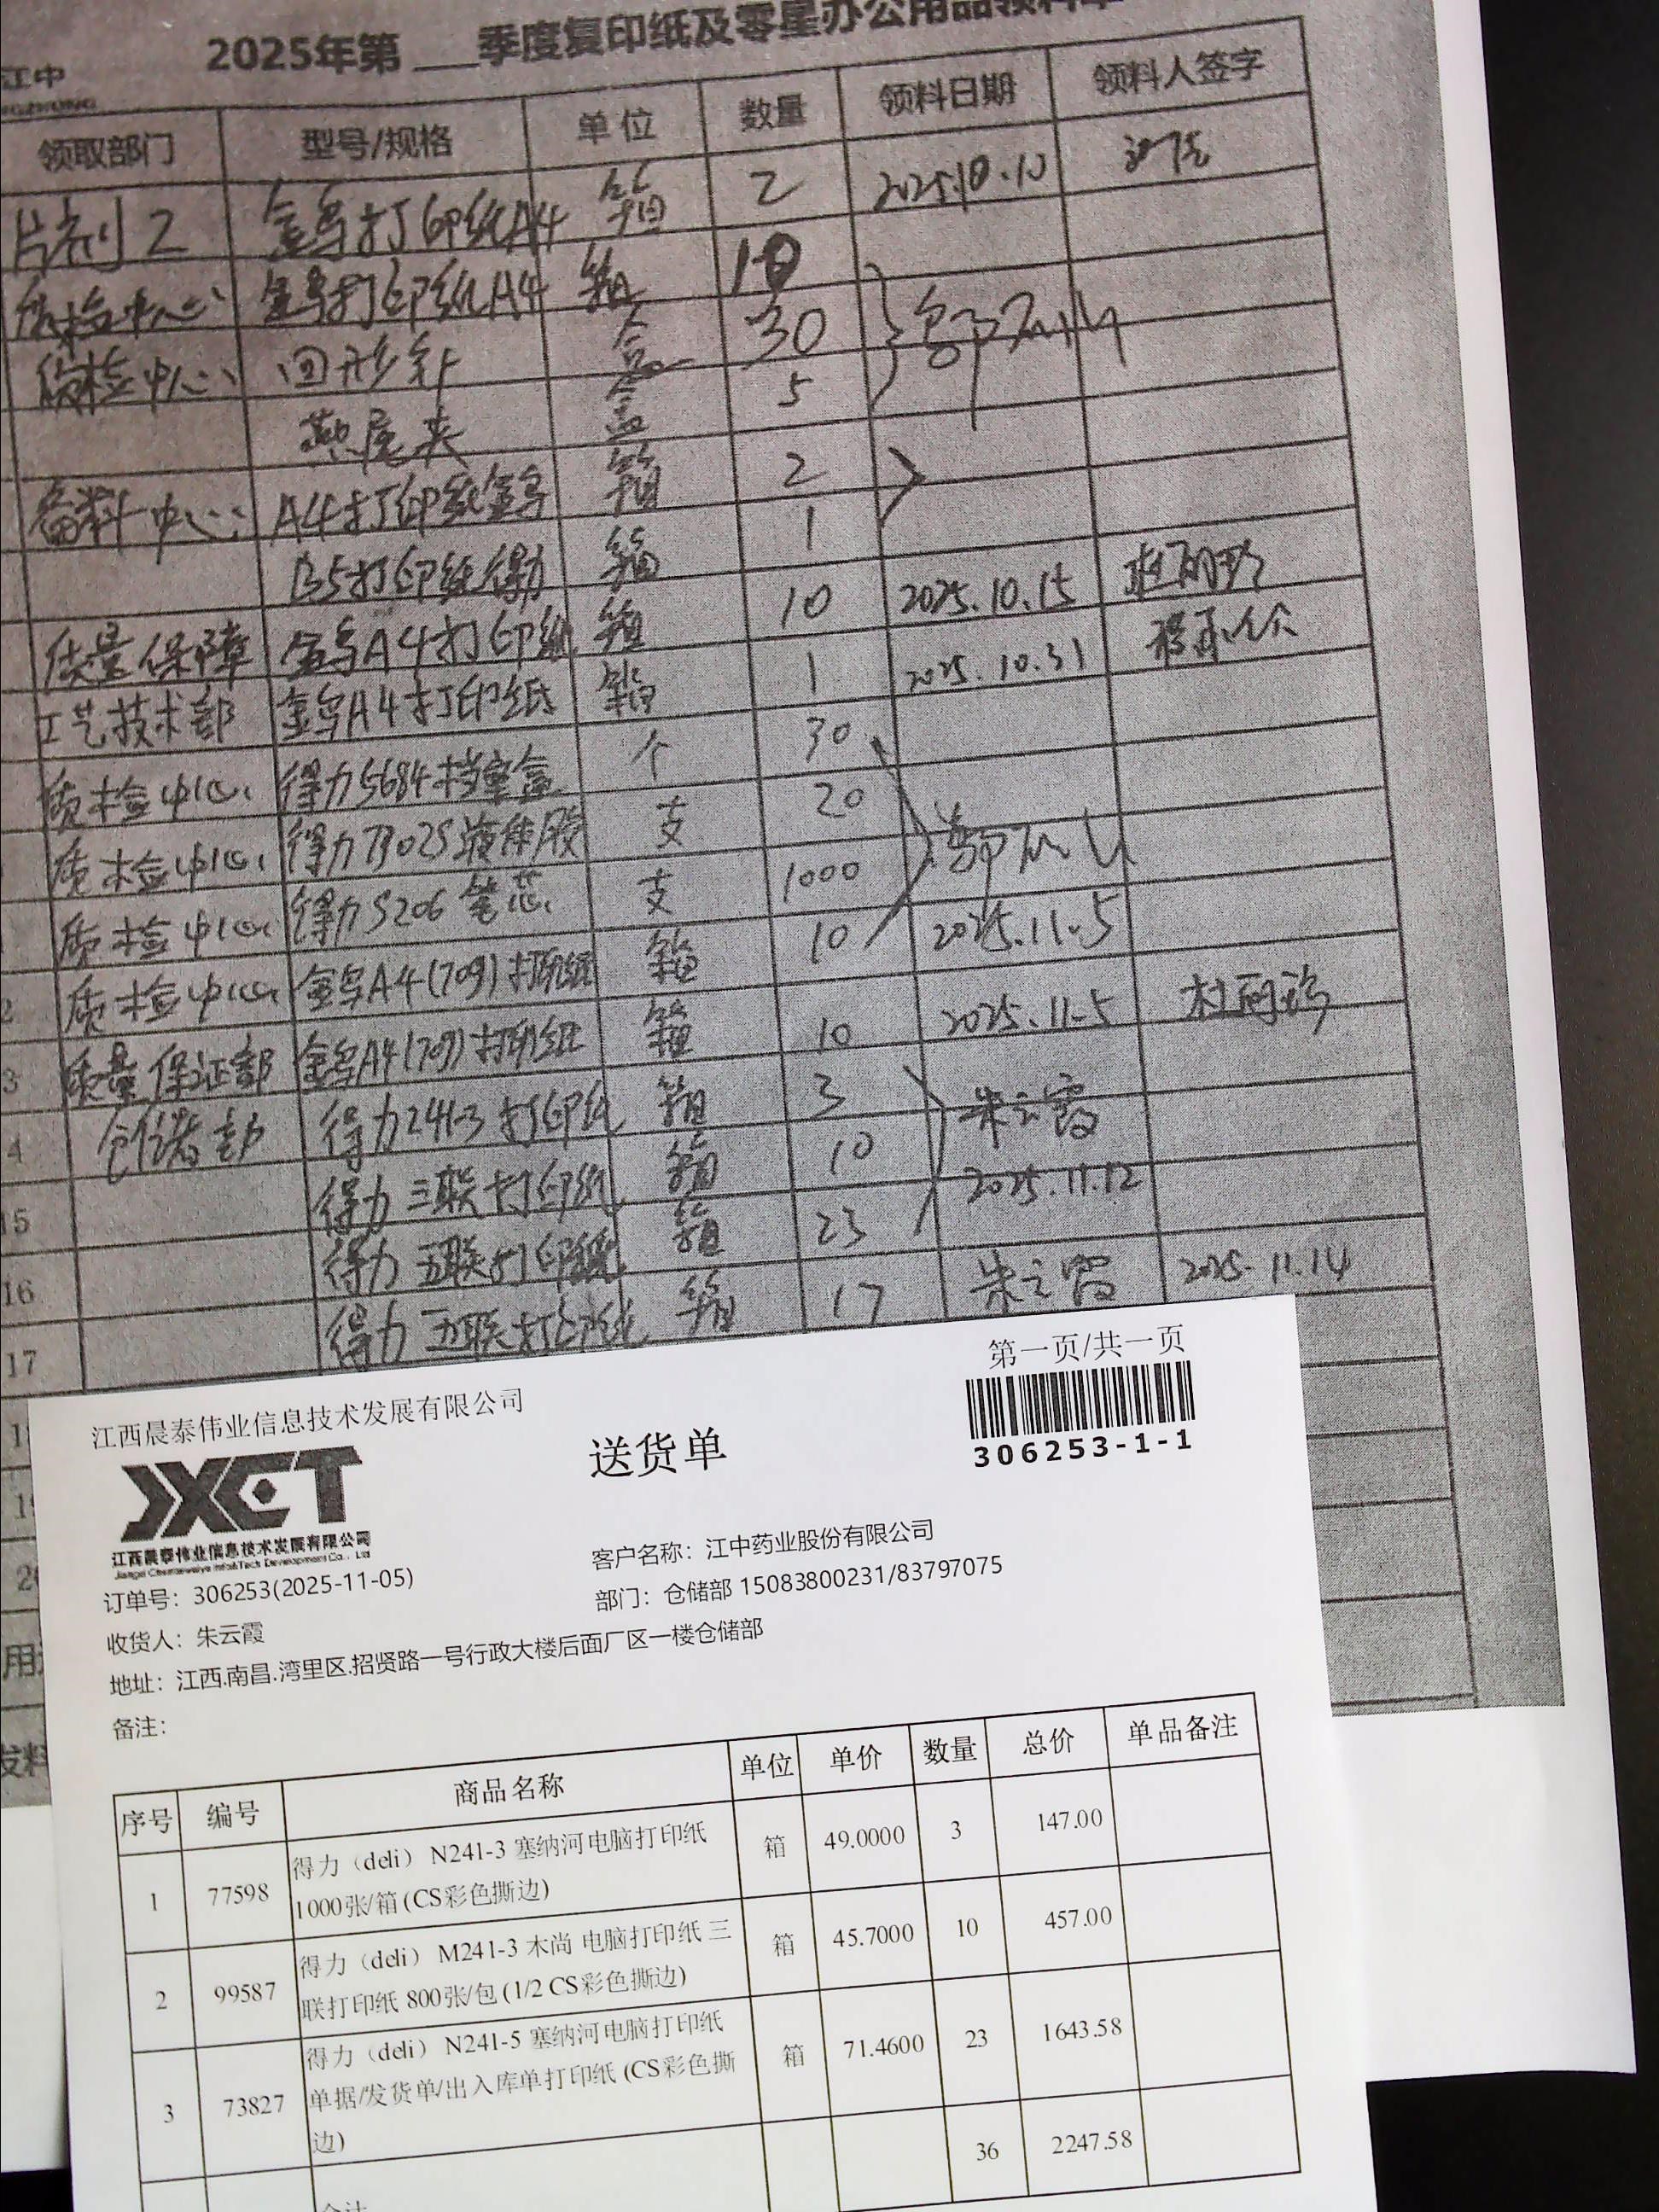 2025年第 ___季度复印纸及零星办公用品领料单
江中
领取部门 型号/规格 单位 数量 领料日期 领料人签字
片剂2 金鸟打印纸A4 箱 2 2025.10.10
质检中心 金鸟打印纸A4 箱 10
质检中心 回形针 盒 30
燕尾夹 盒 5
备料中心 A4打印纸金鸟 箱 2
B5打印纸得力 箱 1
质量保障 金鸟A4打印纸 箱 10 2025.10.15
工艺技术部 金鸟A4打印纸 箱 1 2025.10.31
质检中心 得力5684档案盒 个 30
质检中心 得力7302S液体胶 支 20
质检中心 得力S206笔芯 支 1000
质检中心 金鸟A4(70g)打印纸 箱 10 2025.11.5
3 质量保证部 金鸟A4(70g)打印纸 箱 10 2025.11.5
4 得力241-3打印纸 箱 3 朱云霞
15 得力三联打印纸 箱 10 2025.11.12
16 得力五联打印纸 箱 23
17 得力五联打印纸 箱 17 朱云霞 2025.11.14
第一页/共一页
江西晨泰伟业信息技术发展有限公司
送货单
306253-1-1
JXCT
江西晨泰伟业信息技术发展有限公司
订单号：306253(2025-11-05)
客户名称：江中药业股份有限公司
收货人：朱云霞
部门：仓储部 15083800231/83797075
地址：江西.南昌.湾里区.招贤路一号行政大楼后面厂区一楼仓储部
备注：
序号 编号 商品名称 单位 单价 数量 总价 单品备注
1 77598 得力（deli） N241-3 塞纳河电脑打印纸 箱 49.0000 3 147.00
1000张/箱 (CS彩色撕边)
2 99587 得力（deli） M241-3 木尚 电脑打印纸 三 箱 45.7000 10 457.00
联打印纸 800张/包 (1/2 CS彩色撕边)
3 73827 得力（deli） N241-5 塞纳河电脑打印纸 箱 71.4600 23 1643.58
单据/发货单/出入库单打印纸 (CS彩色撕
边)
合计 36 2247.58